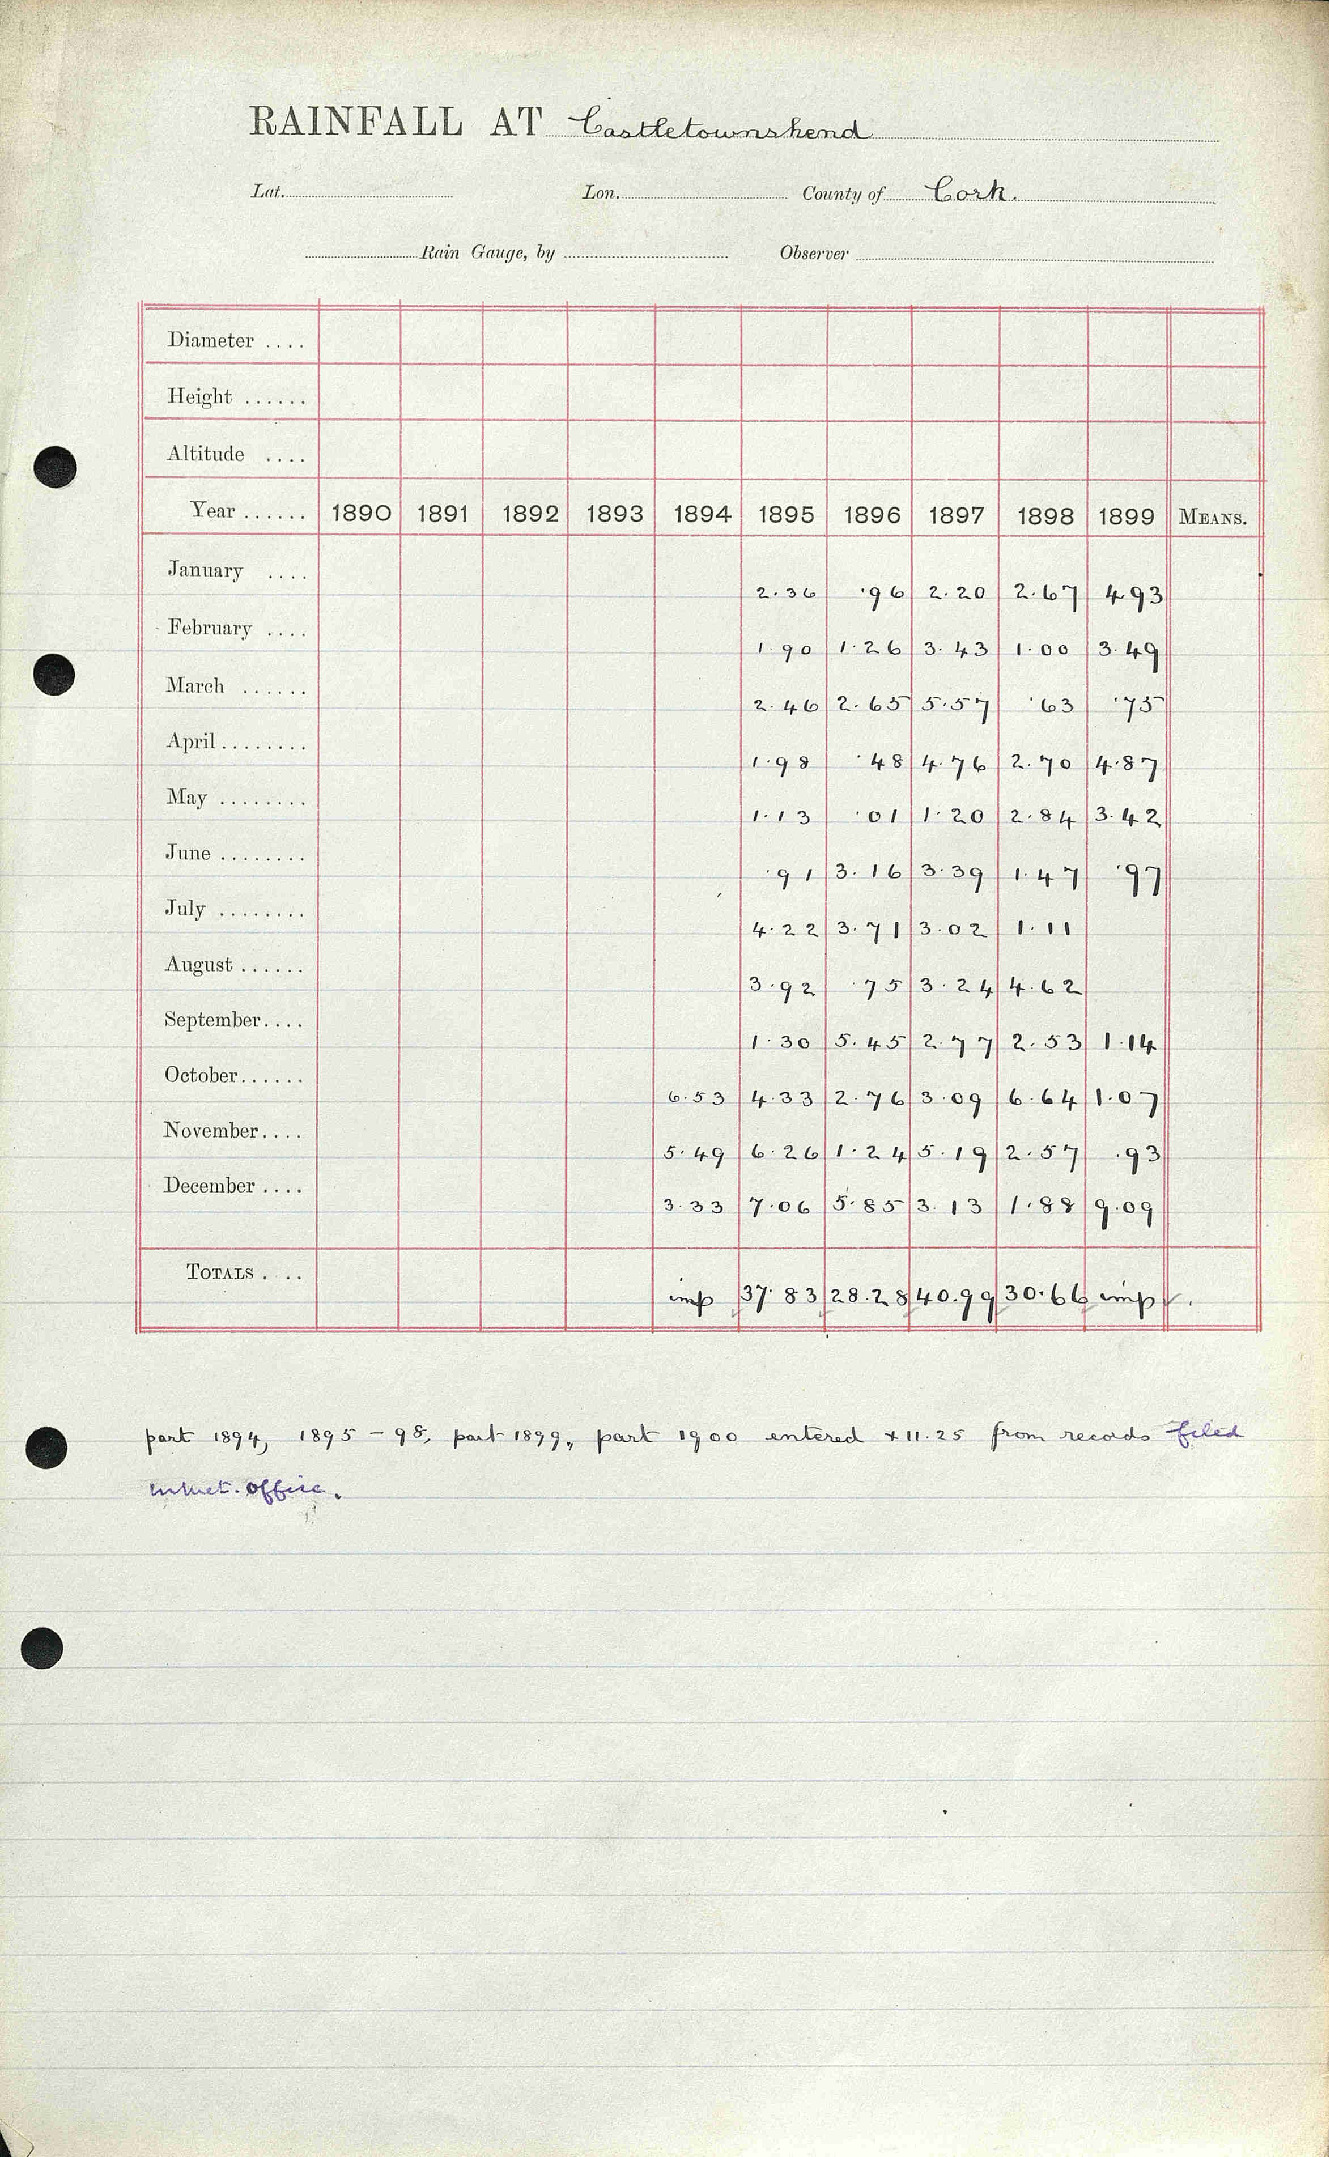 RAINFALL AT Castletownshend
Lat. Lon. County of Cork.
Rain Gauge, by Observer
Diameter ....
Height ......
Altitude ....
Year ...... 1890 1891 1892 1893 1894 1895 1896 1897 1898 1899 MEANS.
January .... 2.36 .96 2.20 2.67 4.93
February .... 1.90 1.26 3.43 1.00 3.49
March ...... 2.46 2.65 5.57 .63 .75
April ........ 1.98 .48 4.76 2.70 4.87
May ........ 1.13 .01 1.20 2.84 3.42
June ........ .91 3.16 3.39 1.47 .97
July ........ 4.22 3.71 3.02 1.11
August ...... 3.92 .75 3.24 4.62
September.... 1.30 5.45 2.77 2.53 1.14
October...... 6.53 4.33 2.76 3.09 6.64 1.07
November.... 5.49 6.26 1.24 5.19 2.57 .93
December .... 3.33 7.06 5.85 3.13 1.88 9.09
TOTALS . .. imp 37.83 28.28 40.99 30.66 imp
part 1894, 1895 - 98, part 1899, part 1900 entered 11.25 from records filed
in Met. Office.